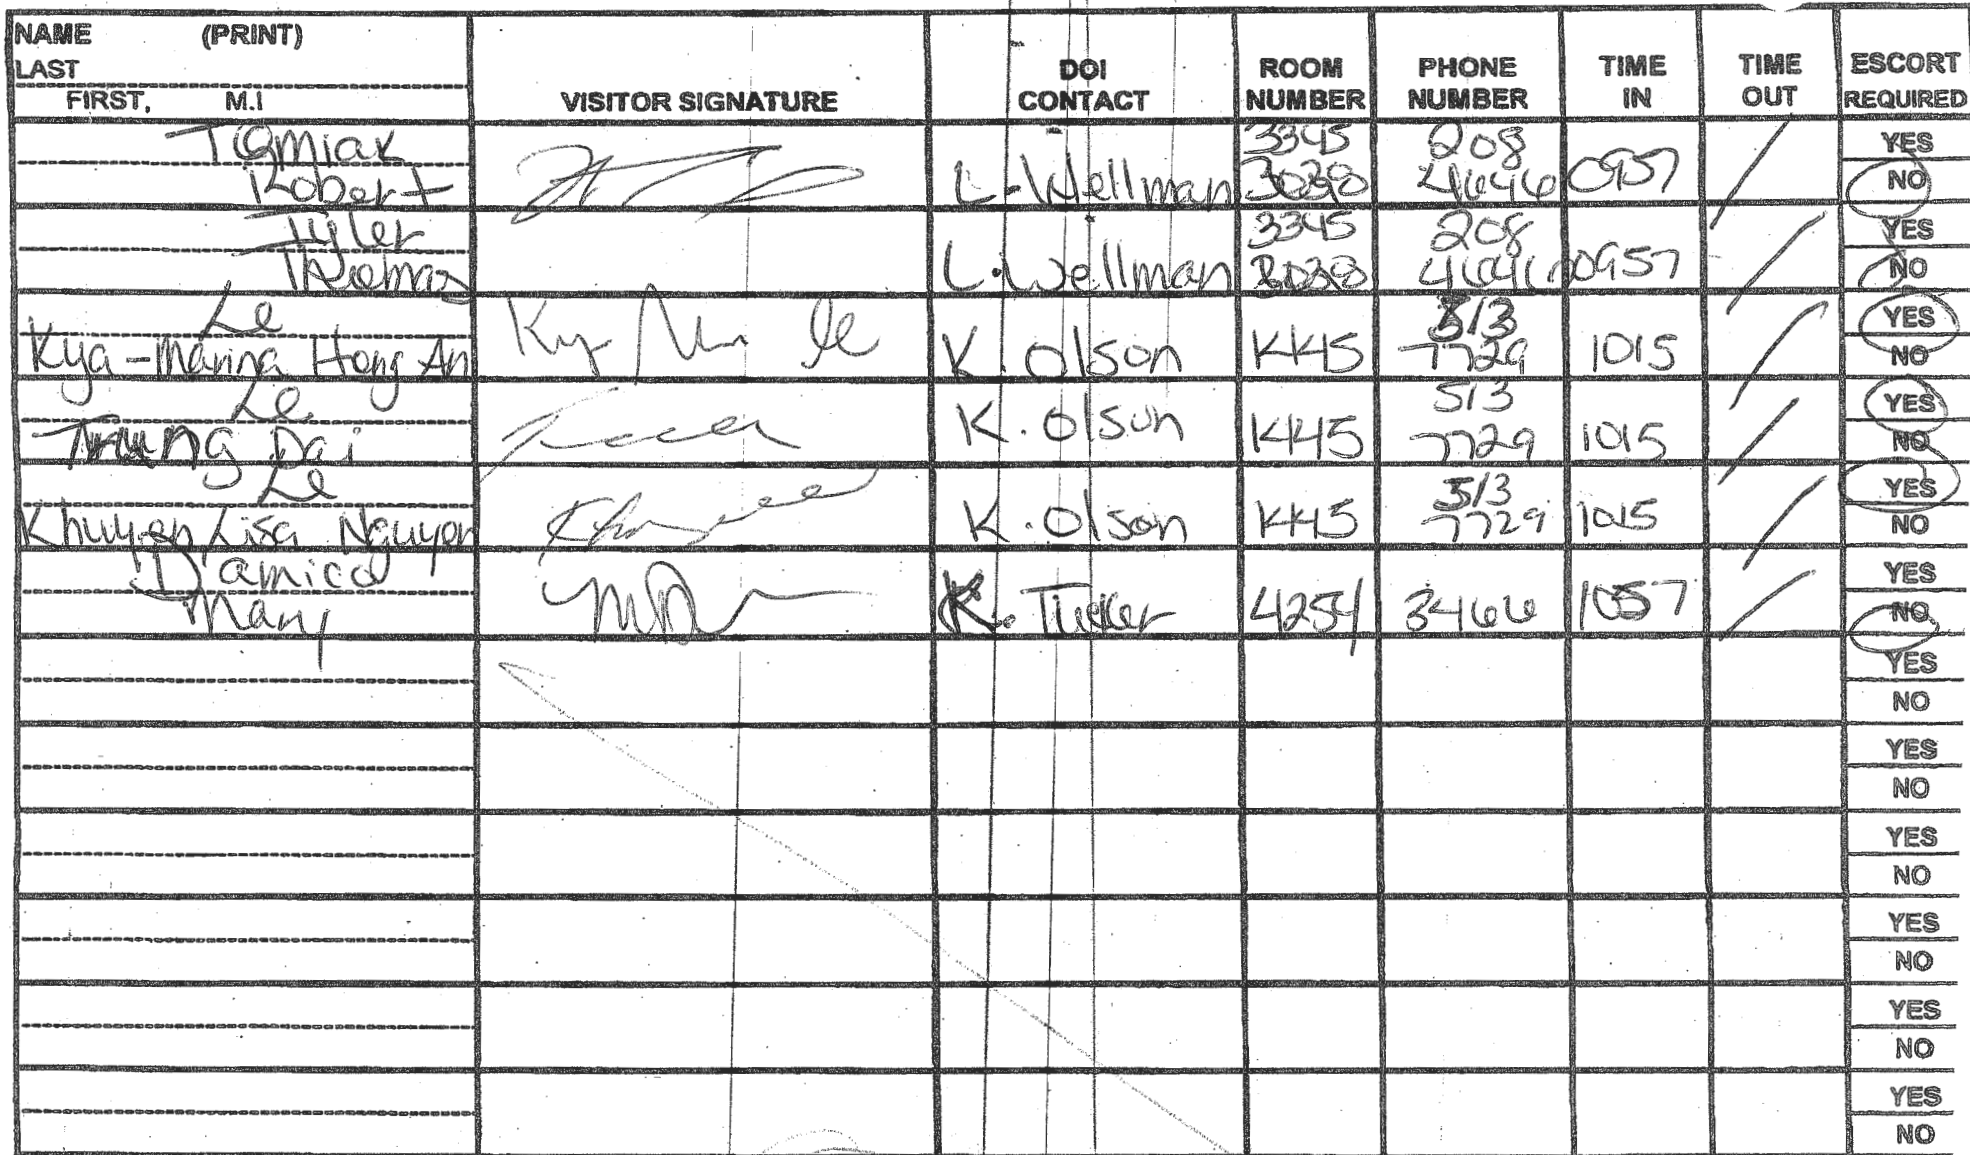 NAME (PRINT)
LAST
FIRST, M.I
VISITOR SIGNATURE
DOI
CONTACT
ROOM
NUMBER
PHONE
NUMBER
TIME
IN
TIME
OUT
ESCORT
REQUIRED
Tomiak
Robert
L. Wellman
3345
3038
208
4646
0957
YES
NO
Tyler
Thomas
L. Wellman
3345
3038
208
4646
0957
YES
NO
Le
Kya-Marina Hong An
Ky Le
K. Olson
KK45
513
7729
1015
YES
NO
Le
Trung Dai
K. Olson
KK45
513
7729
1015
YES
NO
Le
Khuyen Lisa Nguyen
K. Olson
KK45
513
7729
1015
YES
NO
D'amico
Mary
K. Tucker
4254
3466
1057
YES
NO
YES
NO
YES
NO
YES
NO
YES
NO
YES
NO
YES
NO